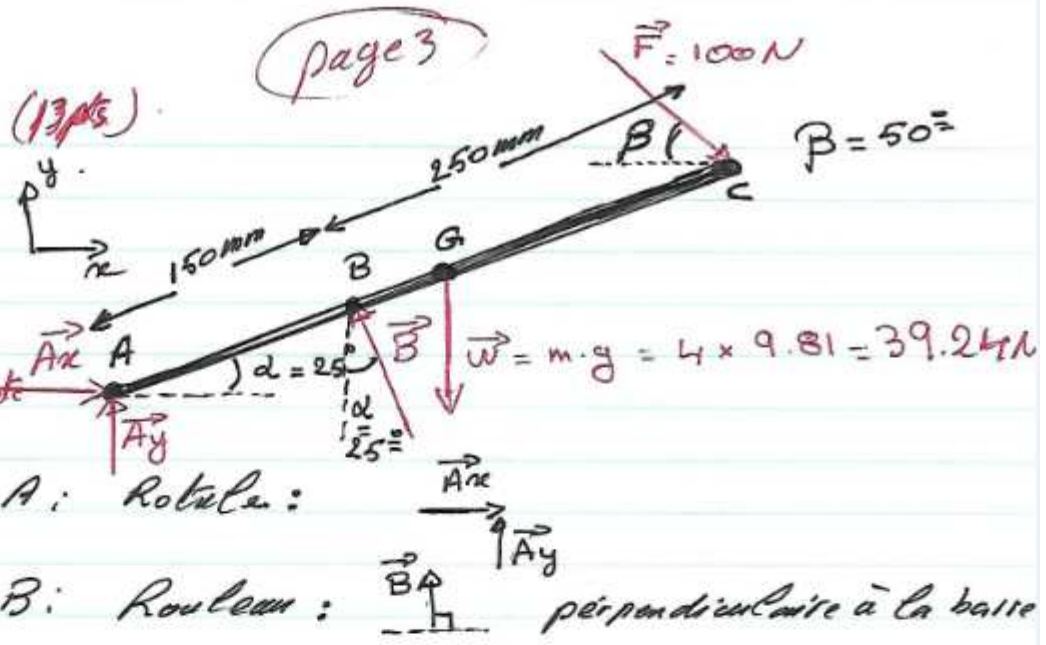 page 3
F = 100N
(13pts)
y
x
250mm
β
β = 50°
C
150mm
G
B
Ax
A
α = 25°
B
w = m.g = 4 x 9.81 = 39.24N
Ay
α
=
25°
A: Rotule:
Ax
Ay
B: Rouleau:
B
perpendiculaire à la barre